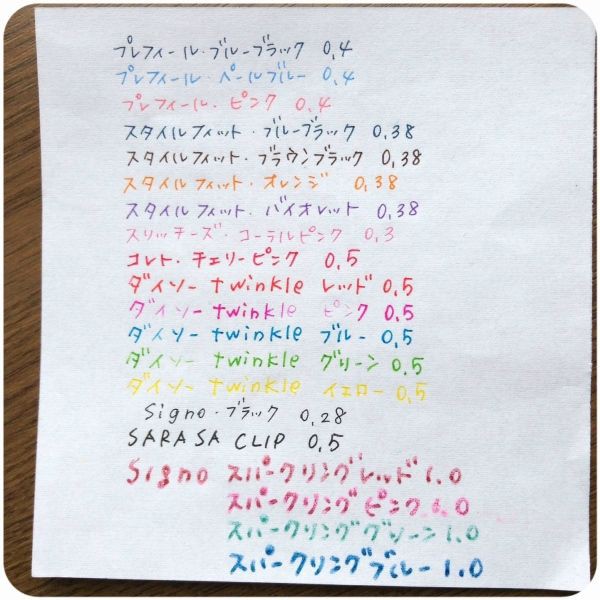 プレフィール・ブルーブラック 0.4
プレフィール・ペールブルー 0.4
プレフィール・ピンク 0.4
スタイルフィット・ブルーブラック 0.38
スタイルフィット・ブラウンブラック 0.38
スタイルフィット・オレンジ 0.38
スタイルフィット・バイオレット 0.38
スリッチーズ・コーラルピンク 0.3
コレト・チェリーピンク 0.5
ダイソー twinkle レッド 0.5
ダイソー twinkle ピンク 0.5
ダイソー twinkle ブルー 0.5
ダイソー twinkle グリーン 0.5
ダイソー twinkle イエロー 0.5
Signo・ブラック 0.28
SARASA CLIP 0.5
Signo スパークリングレッド 1.0
スパークリングピンク 1.0
スパークリンググリーン 1.0
スパークリングブルー 1.0